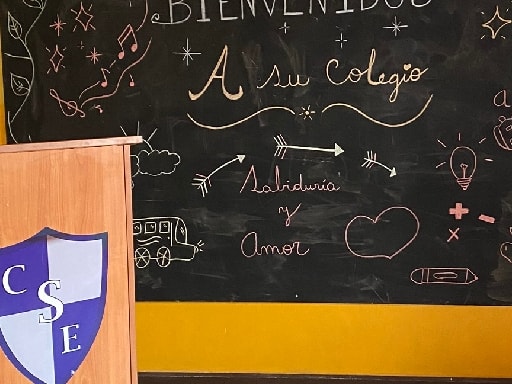 BIENVENIDOS
A su Colegio
Sabiduría
y
Amor
C
S
E